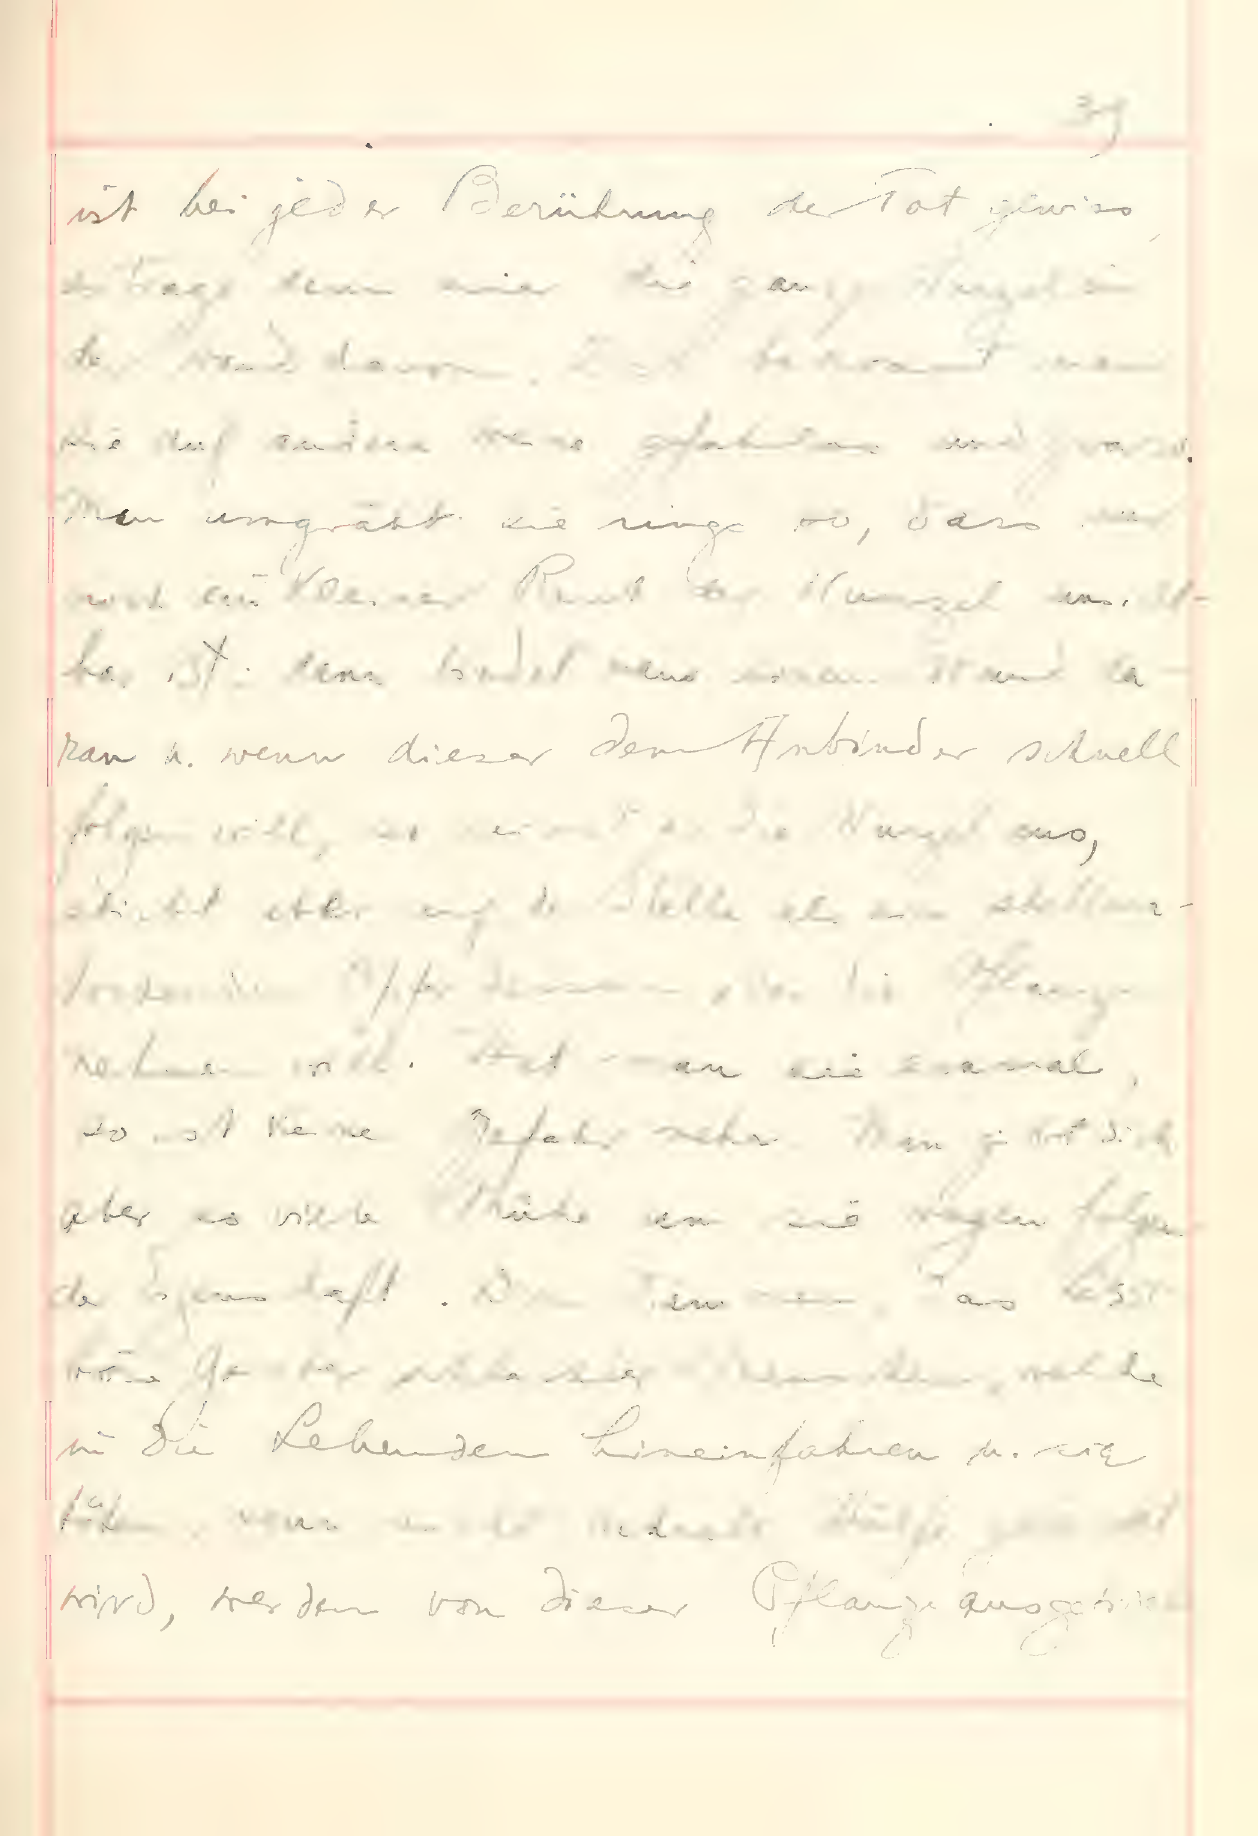 39
ist bei jeder Berührung der Tot gewiss,
es trage denn einer die ganze Wurzel in
der Hand davon. Doch bekommt man
sie auf andere Weise gefahrlos und zwar so.
Man umgräbt sie rings so, dass nur
noch ein kleiner Rest der Wurzel unsicht-
bar ist. dann bindet man einen Hund da-
ran u. wenn dieser dem Anbinder schnell
folgen will, so reisst er die Wurzel aus,
stirbt aber auf der Stelle als ein stellver-
tretendes Opfer dessen der die Pflanze
nehmen will. Hat man sie einmal,
so ist keine Gefahr mehr. Man gibt sich
aber so viele Mühe um sie wegen folgen
der Eigenschaft. Die Dämonen, das heisst
böse Geister schlechter Menschen, welche
in die Lebenden hineinfahren u. sie
töten, wenn nicht Hülfe geleistet
wird, werden von dieser Pflanze